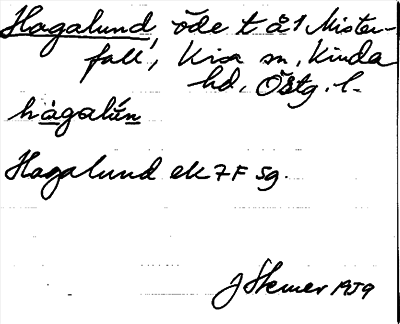 Hagalund, öde t å 1 Mister-
fall, Kisa sn, Kinda
hd, Östg. l.
hàgalún
Hagalund ek 7F Sg.
J Stemer 1959